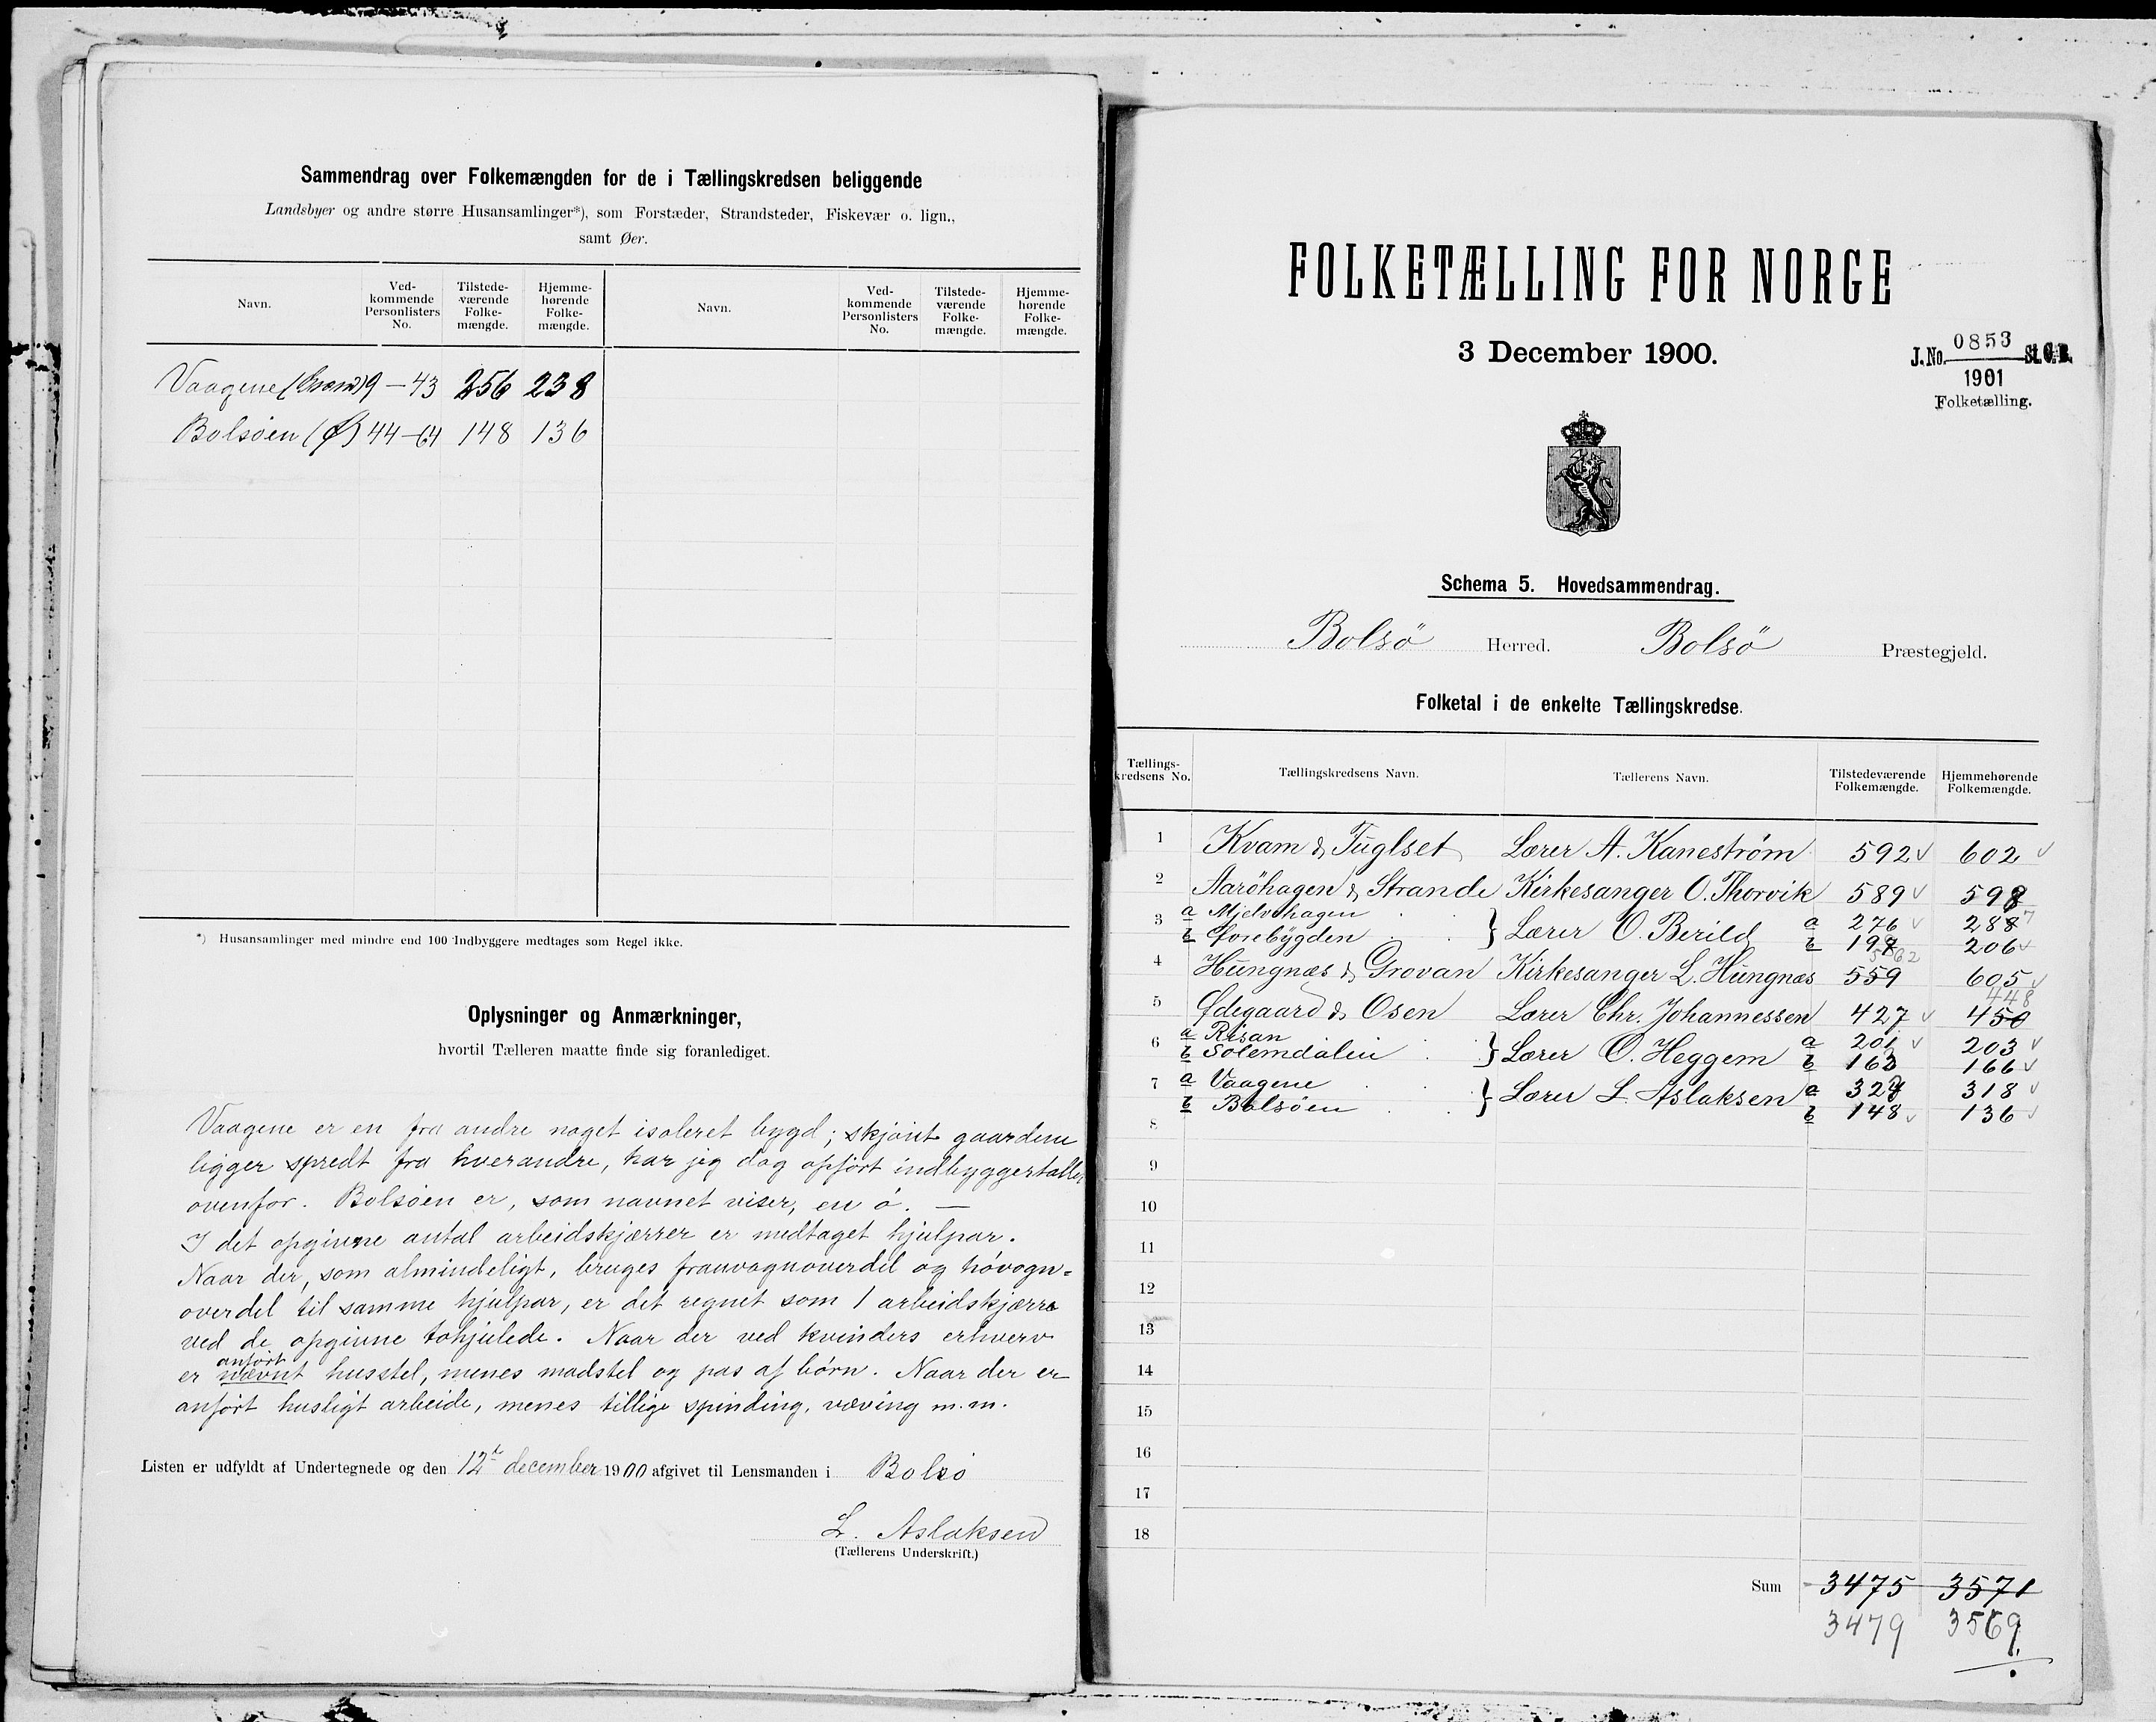 Sammendrag over Folkemængden for de i Tællingskredsen beliggende
Landsbyer og andre større Husansamlinger*), som Forstæder, Strandsteder, Fiskevær o. lign.,
samt Øer.
Navn. Ved-kommende Personlisters No. Tilstede-værende Folke-mængde. Hjemme-hørende Folke-mængde. Navn. Ved-kommende Personlisters No. Tilstede-værende Folke-mængde. Hjemme-hørende Folke-mængde.
Vaagene 9-43 256 238
Bolsöen (Ø) 44-64 148 136
*) Husansamlinger med mindre end 100 Indbyggere medtages som Regel ikke.
Oplysninger og Anmærkninger,
hvortil Tælleren maatte finde sig foranlediget.
Vaagene er en fra andre noget isoleret bygd; skjönt gaardene
ligger spredt fra hverandre, har jeg dog opfört indbyggertallet
ovenfor. Bolsöen er, som navnet viser, en ö. —
I det opgivne antal arbeidskjærrer er medtaget hjulpar.
Naar der, som almindeligt, bruges frauvognoverdel og hövogn=
overdel til samme hjulpar, er det regnet som 1 arbeidskjærre
ved de opgivne tohjulede. Naar der ved kvinders erhverv
anfört
er nævnt husstel, menes madstel og pas af börn. Naar der er
anfört husligt arbeide, menes tillige spinding, væving m.m.
Listen er udfyldt af Undertegnede og den 12te december 1900 afgivet til Lensmanden i Bolsö
L. Aslaksen
(Tællerens Underskrift.)
FOLKETÆLLING FOR NORGE
3 December 1900.
J.No. 0853 St.C.B.
1901
Folketælling.
Schema 5. Hovedsammendrag.
Bolsö Herred. Bolsö Præstegjeld.
Folketal i de enkelte Tællingskredse.
Tællings-kredsens No. Tællingskredsens Navn. Tællerens Navn. Tilstedeværende Folkemængde. Hjemmehørende Folkemængde.
1 Kvam & Fuglset Lærer A. Kaneström 592 602
2 Aaröhagen & Strande Kirkesanger O. Thorvik 589 598
3 a Mjelvehagen } Lærer O. Berild a 276 288 7
b b 197 206
562
4 Hungnæs & Grovan Kirkesanger L. Hungnæs 559 605
448
5 Ødegaard & Osen Lærer Chr. Johannessen 427 450
6 a Risan } Lærer O. Heggem a 201 203
b Solemdalen b 163 166
7 a Vaagene } Lærer L. Aslaksen a 327 318
b Bolsöen b 148 136
8
9
10
11
12
13
14
15
16
17
18
Sum 3475 3571
3479 3569